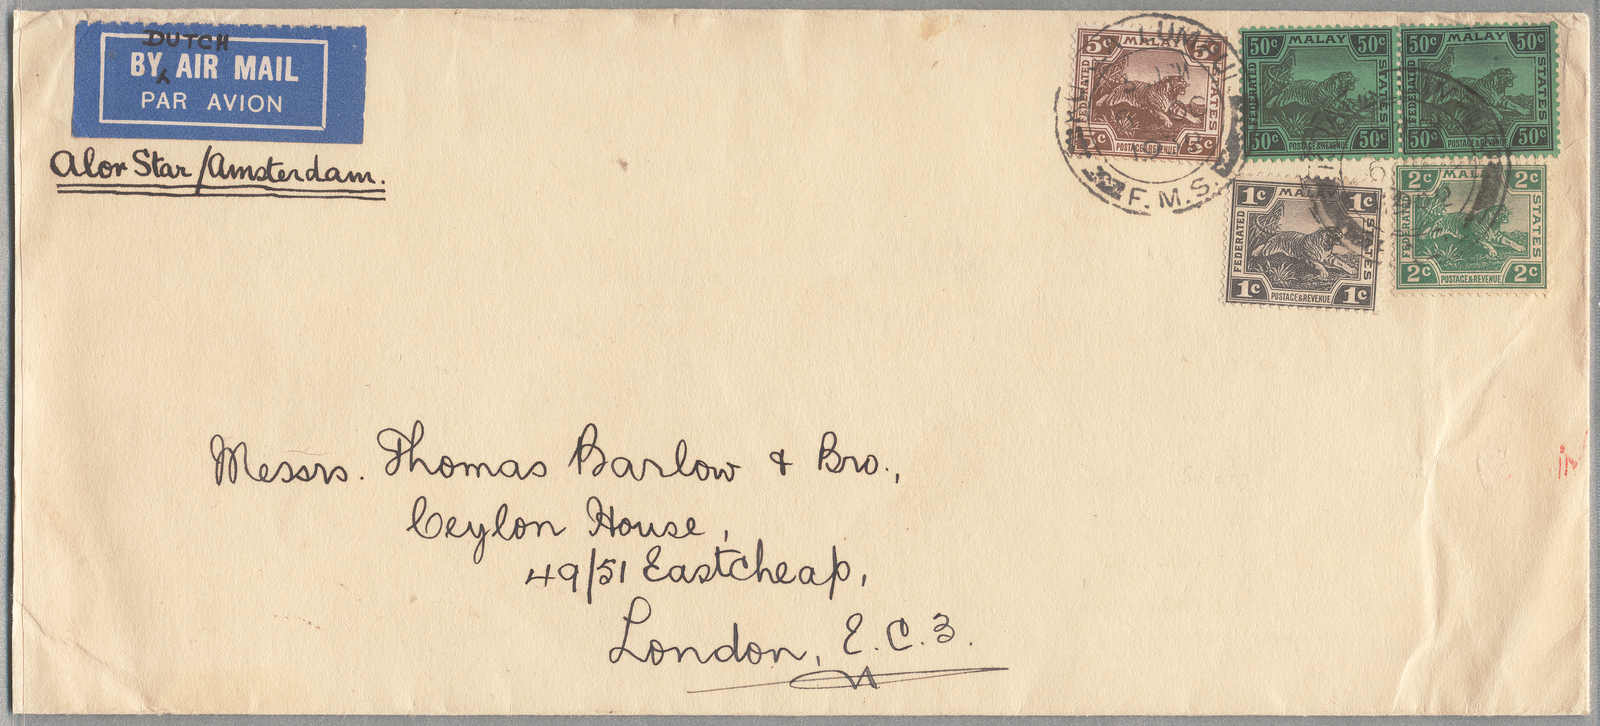 DUTCH
BY AIR MAIL
PAR AVION
Alor Star/Amsterdam.
5c MALAY 5c
FEDERATED
STATES
5c POSTAGE & REVENUE 5c
F.M.S.
50c MALAY 50c
FEDERATED
STATES
50c POSTAGE & REVENUE 50c
50c MALAY 50c
FEDERATED
STATES
50c POSTAGE & REVENUE 50c
1c MALAY 1c
FEDERATED
STATES
1c POSTAGE & REVENUE 1c
2c MALAY 2c
FEDERATED
STATES
2c POSTAGE & REVENUE 2c
Messrs. Thomas Barlow & Bro.,
Ceylon House,
49/51 Eastcheap,
London, E.C.3.